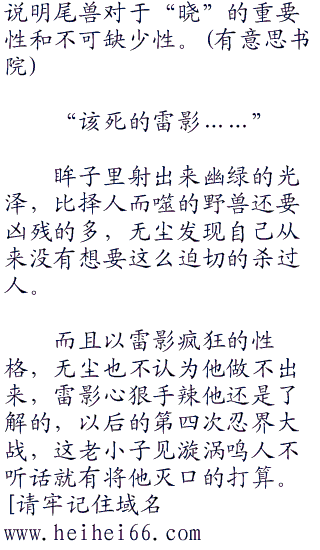 说明尾兽对于“晓”的重要
性和不可缺少性。(有意思书
院)
“该死的雷影……”
眸子里射出来幽绿的光
泽，比择人而噬的野兽还要
凶残的多，无尘发现自己从
来没有想要这么迫切的杀过
人。
而且以雷影疯狂的性
格，无尘也不认为他做不出
来，雷影心狠手辣他还是了
解的，以后的第四次忍界大
战，这老小子见漩涡鸣人不
听话就有将他灭口的打算。
[请牢记住域名
www.heihei66.com